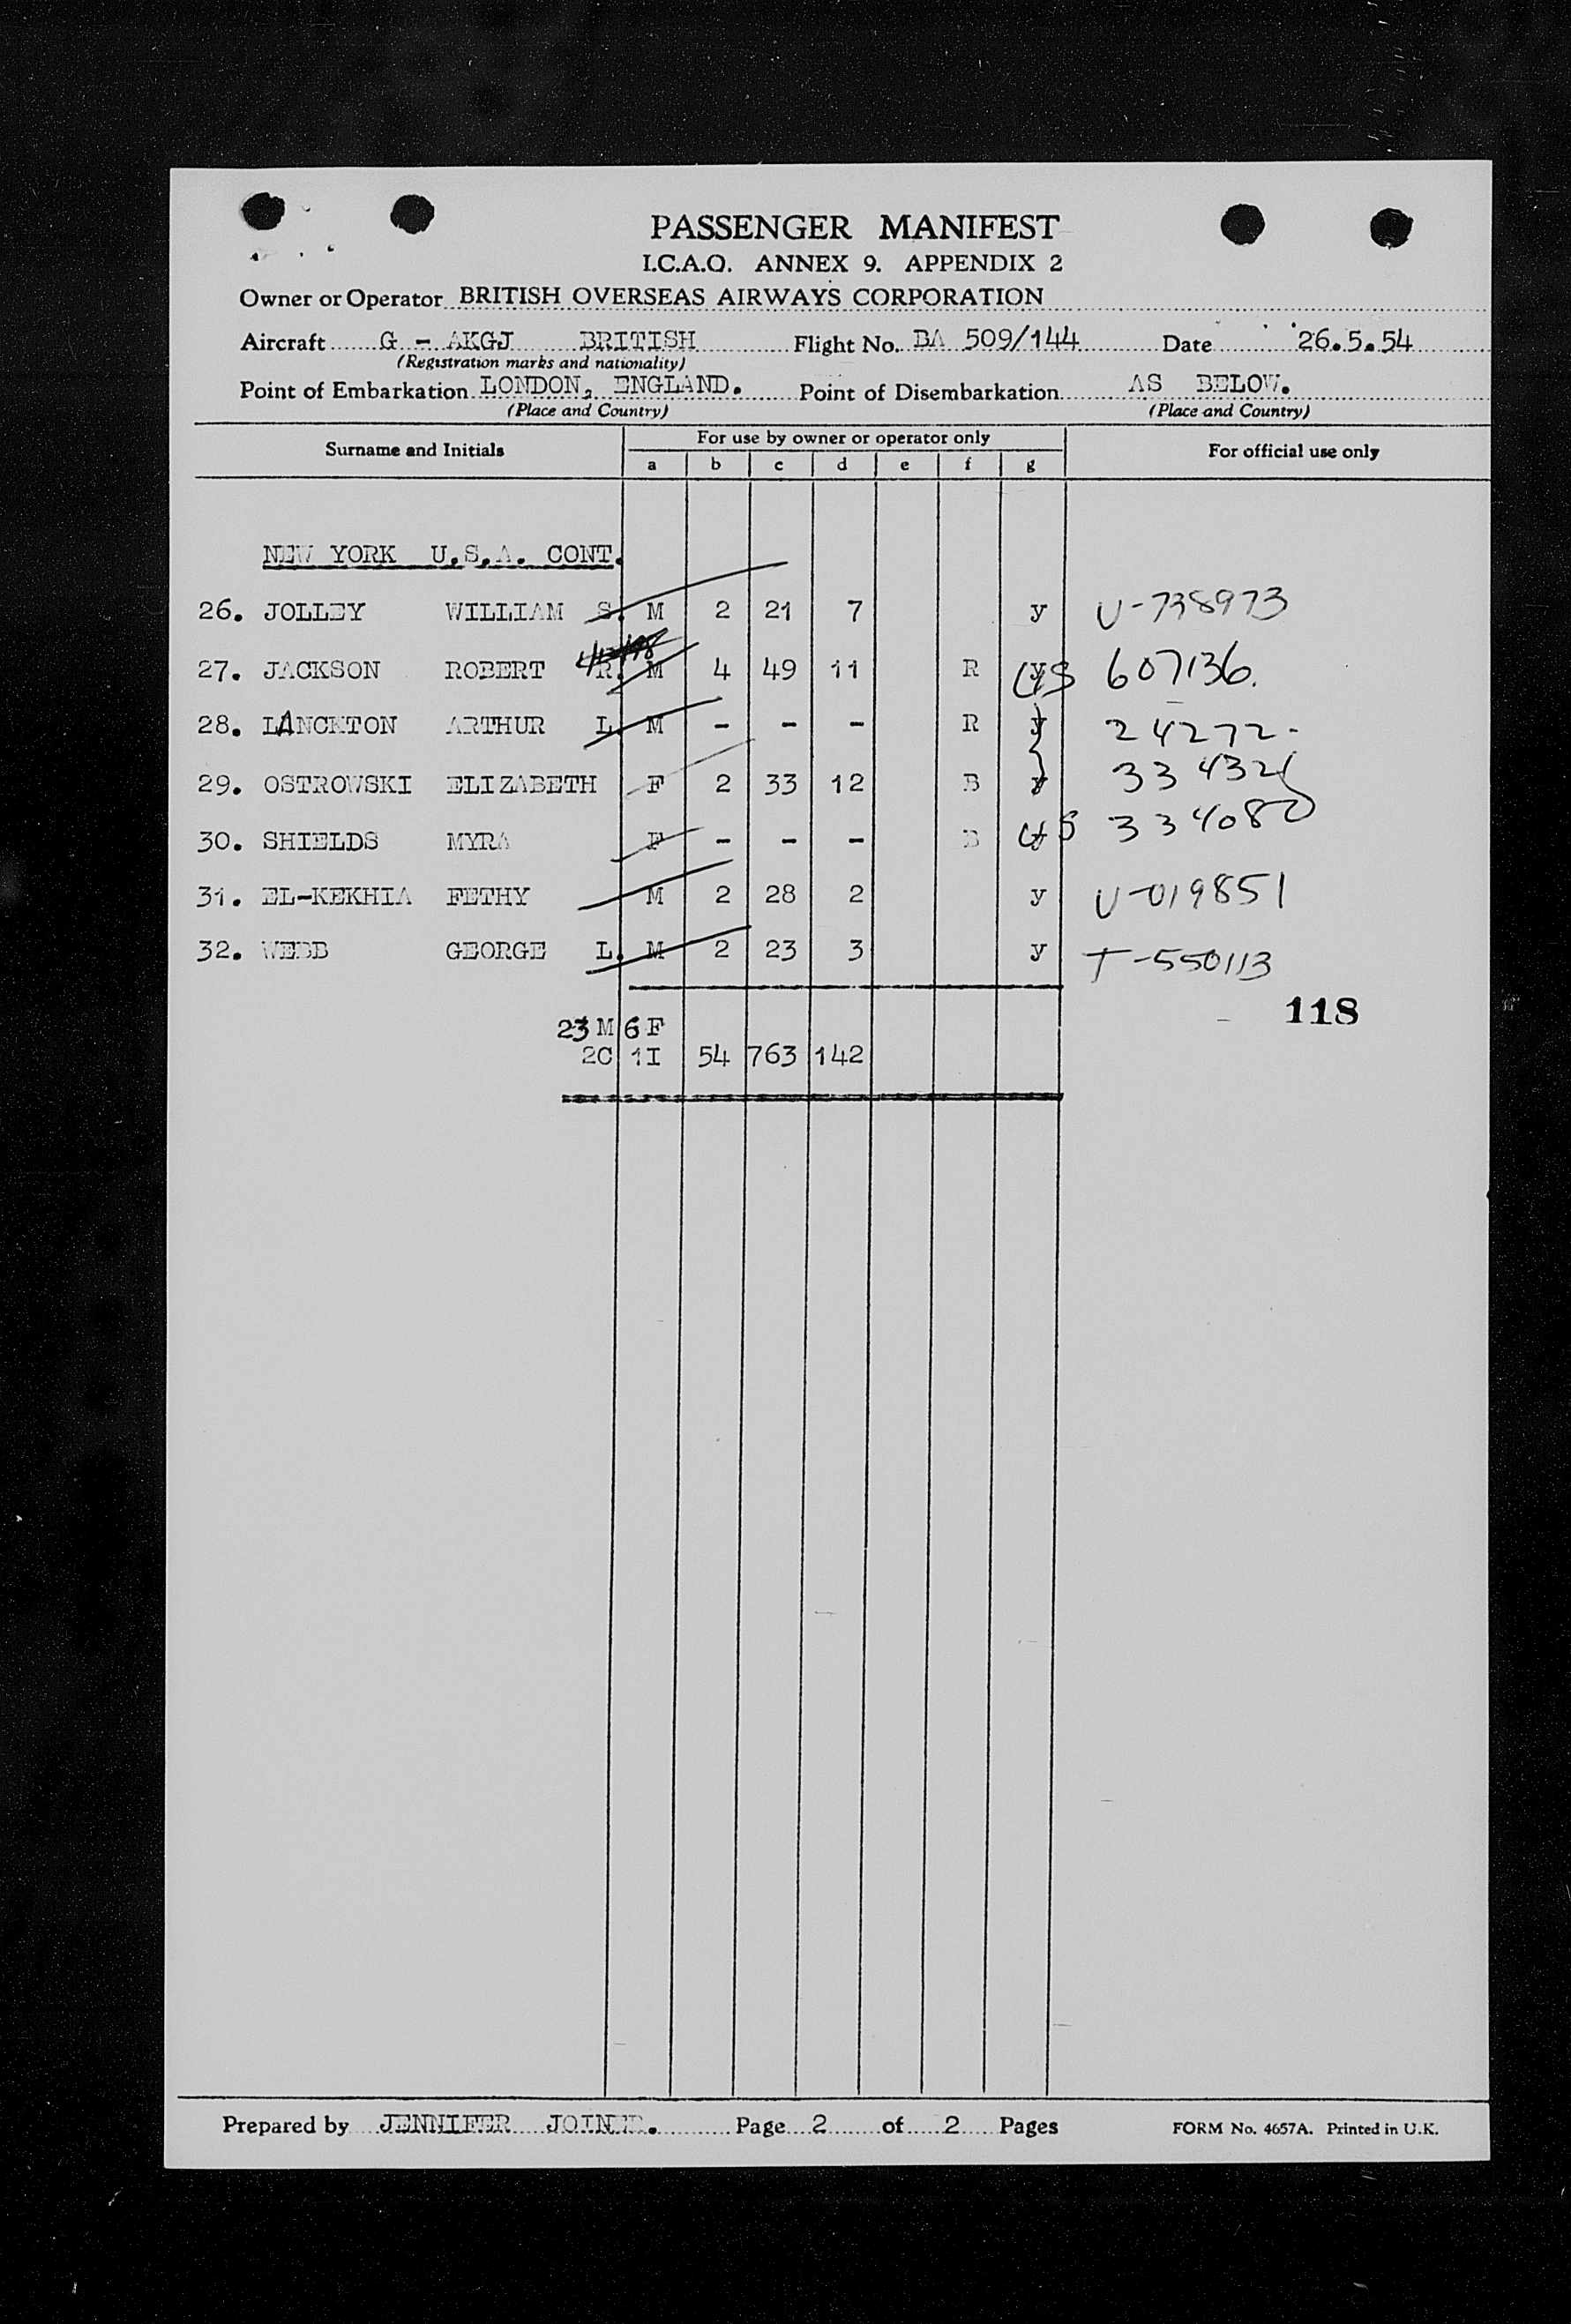 PASSENGER MANIFEST
I.C.A.O. ANNEX 9. APPENDIX 2
Owner or Operator BRITISH OVERSEAS AIRWAYS CORPORATION
Aircraft G - AKGJ BRITISH Flight No. BA 509/144 Date 26.5.54
(Registration marks and nationality)
Point of Embarkation LONDON, ENGLAND. Point of Disembarkation AS BELOW.
(Place and Country) (Place and Country)
Surname and Initials For use by owner or operator only For official use only
a b c d e f g
NEW YORK U.S.A. CONT.
26. JOLLEY WILLIAM S. M 2 21 7 y U-738973
27. JACKSON ROBERT R. M 4 49 11 R y US 607136.
28. LANCKTON ARTHUR L. M - - - R y 24272-
29. OSTROWSKI ELIZABETH F 2 33 12 B y 33432
30. SHIELDS MYRA F - - - B US 334080
31. EL-KEKHIA FETHY M 2 28 2 y U-019851
32. WEBB GEORGE L. M 2 23 3 y T-550113
118
23 M 6 F
2C 1I 54 763 142
Prepared by JENNIFER JOINER. Page 2 of 2 Pages FORM No. 4657A. Printed in U.K.